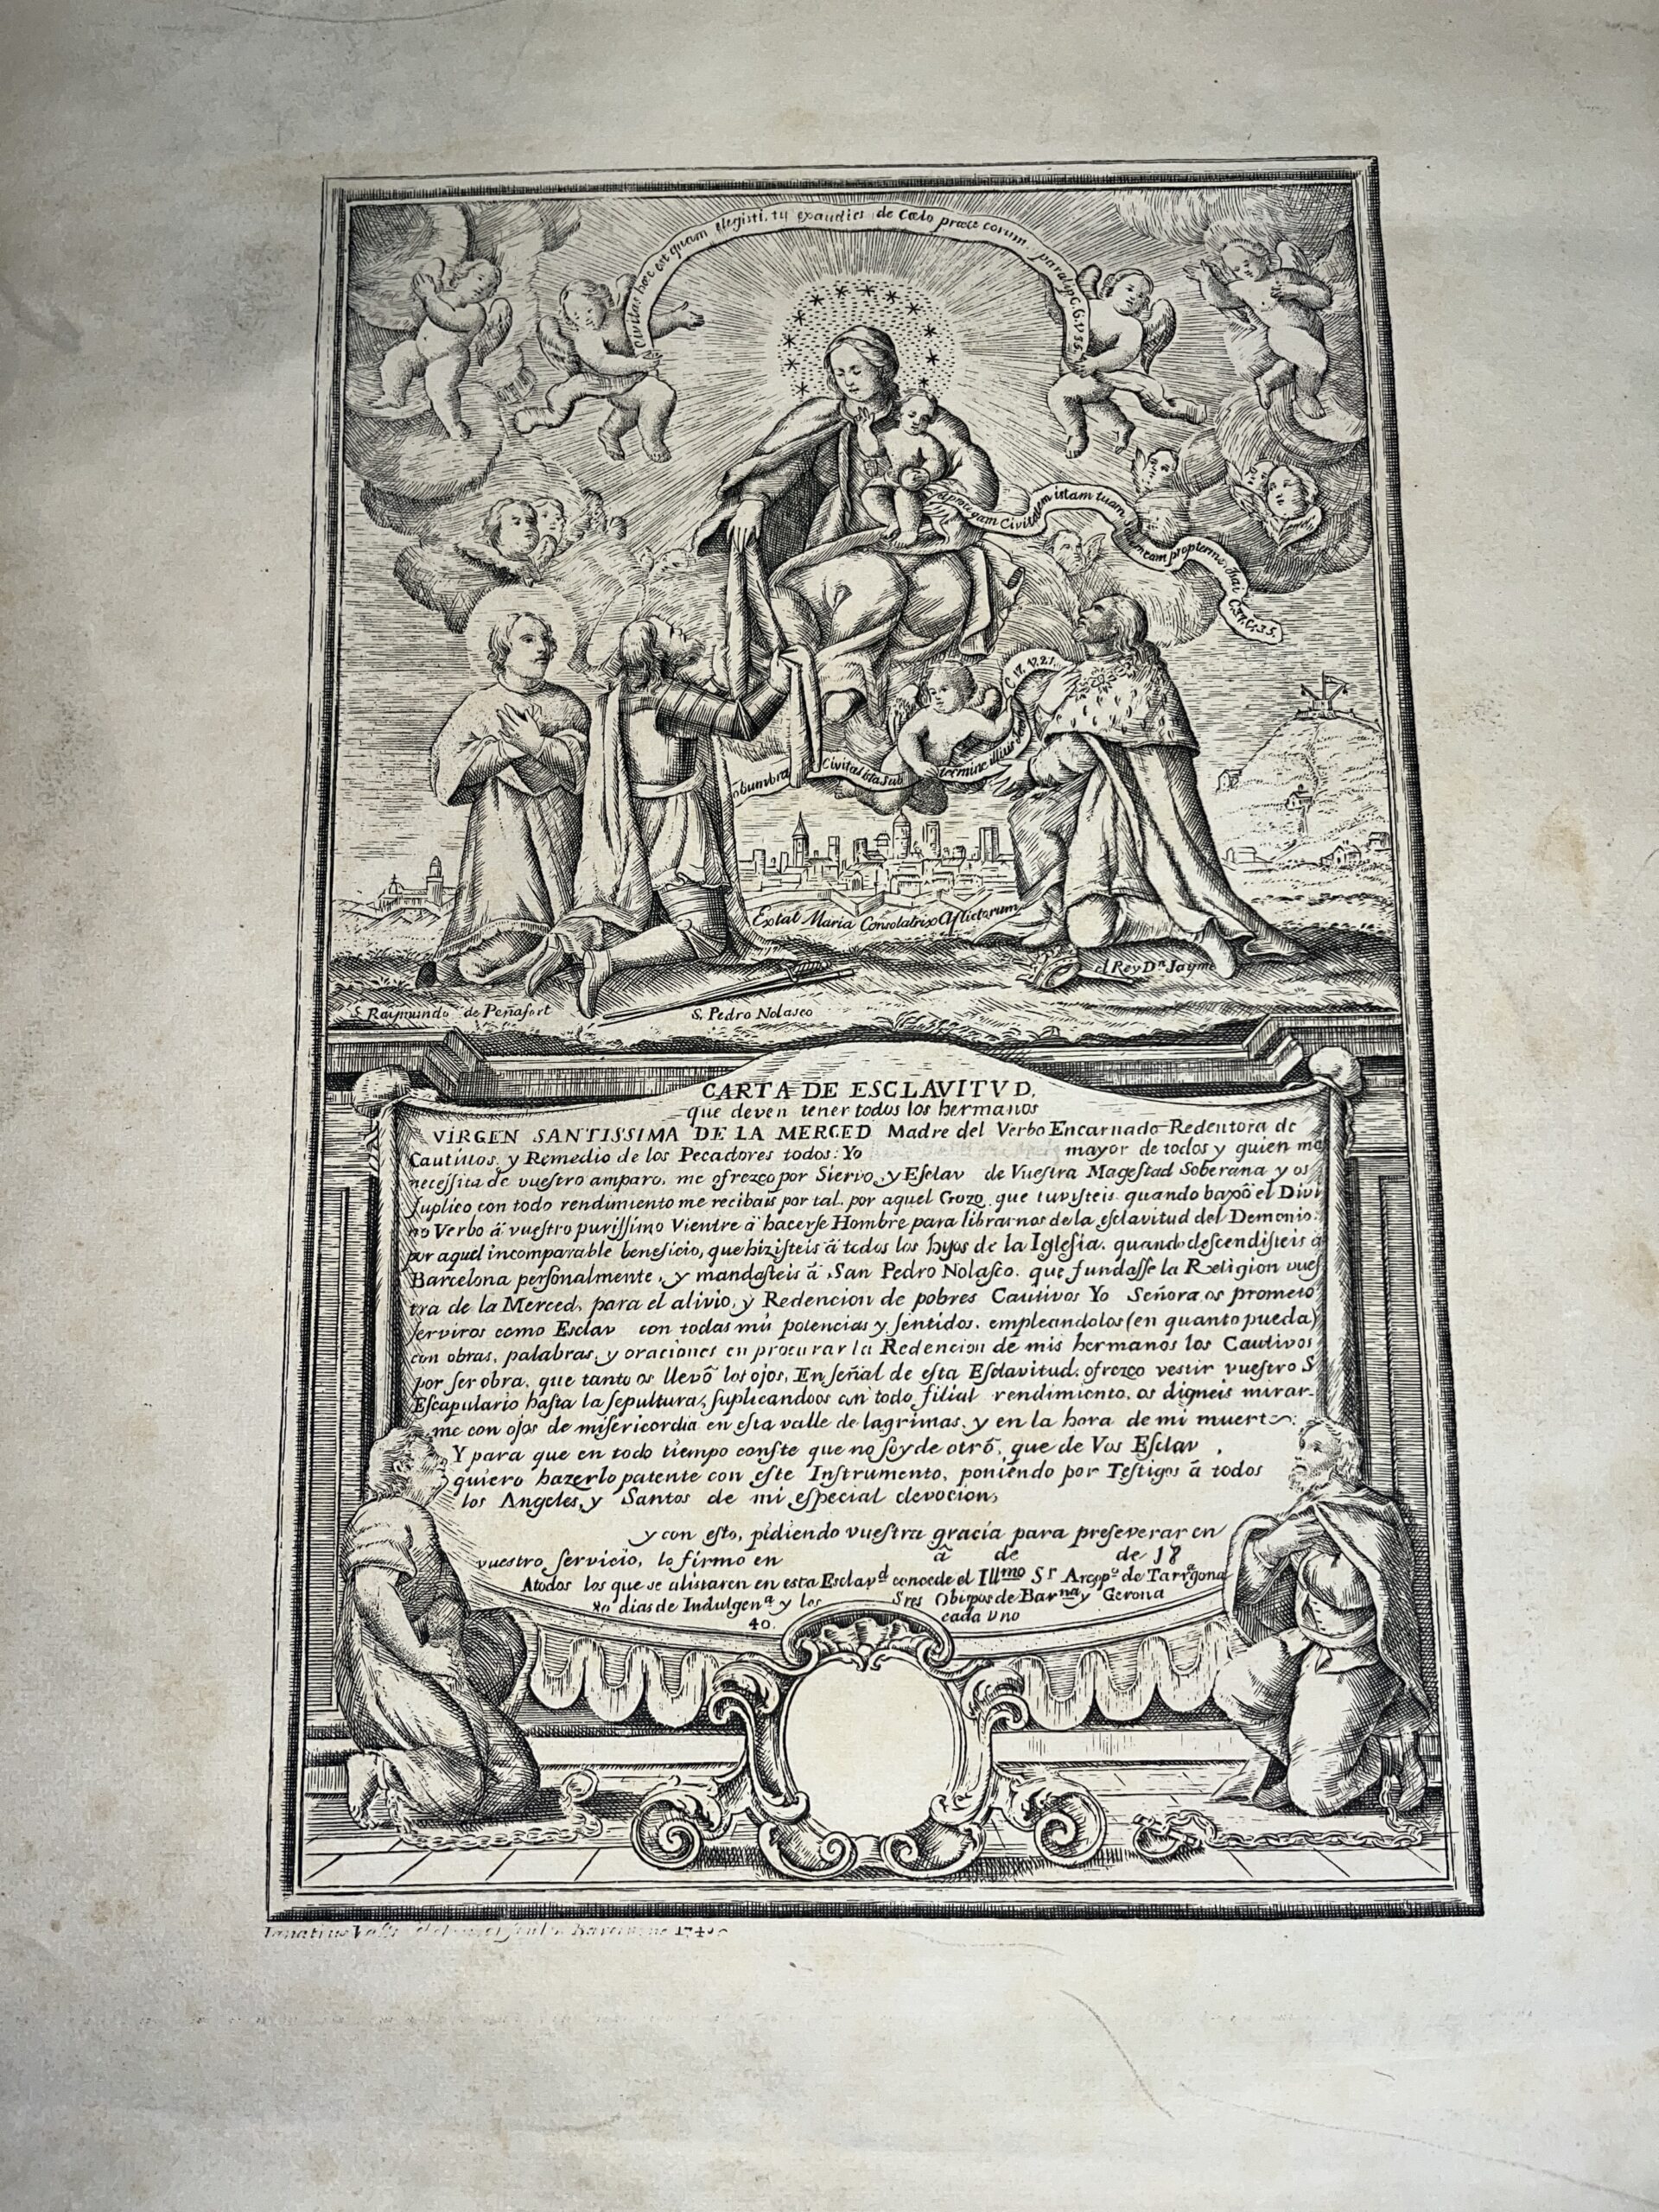 Civitas hæc est quam elegisti, tu exaudies de Cœlo præce eorum. paralip. C. 6. v. 35.
Civitatem istam tuam
eam propter me. Isai
C. 37. v. 35.
C. 17. v. 21.
obumbra Civitas ista sub termine illius
Extat Maria Consolatrix Aflictorum
el Rey Dn. Jayme
S. Raijmundo de Peñafort
S. Pedro Nolasco
CARTA DE ESCLAVITVD,
que deven tener todos los hermanos
VIRGEN SANTISSIMA DE LA MERCED Madre del Verbo Encarnado Redentora de
Cautivos, y Remedio de los Pecadores todos: Yo mayor de todos y quien mas
necessita de vuestro amparo, me ofrezco por Siervo, y Esclav de Vuestra Magestad Soberana y os
suplico con todo rendimiento me recibais por tal, por aquel Gozo, que tuvisteis quando baxô el Divi
no Verbo â vuestro purissimo Vientre â hacerse Hombre para librarnos de la esclavitud del Demonio:
por aquel incomparable beneficio, que hizisteis â todos los hijos de la Iglesia, quando descendisteis a
Barcelona personalmente, y mandasteis â San Pedro Nolasco, que fundasse la Religion vues
tra de la Merced, para el alivio, y Redencion de pobres Cautivos Yo Señora os prometo
serviros como Esclav con todas mis potencias y sentidos, empleandolos (en quanto pueda)
con obras, palabras, y oraciones en procurar la Redencion de mis hermanos los Cautivos
por ser obra, que tanto os llevô los ojos, En señal de esta Esclavitud, ofrezco vestir vuestro S
Escapulario hasta la sepultura, suplicandoos con todo filial rendimiento, os digneis mirar-
me con ojos de misericordia en esta valle de lagrimas, y en la hora de mi muerte:
Y para que en todo tiempo conste que no soy de otrô, que de Vos Esclav ,
quiero hazerlo patente con este Instrumento, poniendo por Testigos â todos
los Angeles, y Santos de mi especial devocion,
y con esto, pidiendo vuestra gracia para preseverar en
vuestro servicio, lo firmo en â de de 18
A todos los que se alistaren en esta Esclavd concede el Illmo Sr Arcopo de Tarrgona
80 dias de Indulgena y los Sres Obispos de Barna y Gerona
40. cada uno
Ignatius Valls